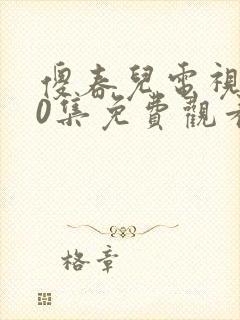 傻春兒電視
0集免費觀看
格章